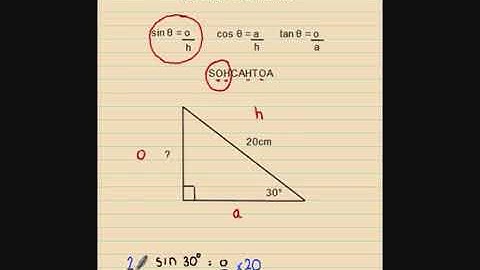 sin θ = o/h cos θ = a/h tan θ = o/a
SOHCAHTOA
h
20cm
o ?
30°
a
2 sin 30° = o x20